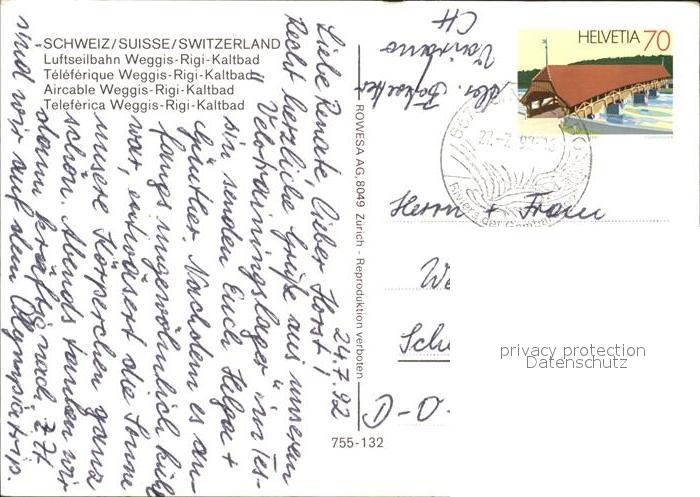 SCHWEIZ/SUISSE/SWITZERLAND
Luftseilbahn Weggis-Rigi-Kaltbad
Téléférique Weggis-Rigi-Kaltbad
Aircable Weggis-Rigi-Kaltbad
Telefèrica Weggis-Rigi-Kaltbad
24.7.92
Liebe Renate, lieber Horst!
Recht herzliche Grüße aus unserem
"Velotrainingslager" im Tes-
sin senden Euch Helga +
Günther. Nachdem es an-
fangs ungewöhnlich kühl
war, entwässert die Sonne
unsere Körperchen ganz
schön. Abends tanken wir
dann kräftig nach. Z.Zt.
sind wir auf dem Olympiatrip.
ROWESA AG, 8049 Zürich - Reproduktion verboten
755-132
Abs.
Vairano
CH
HELVETIA 70
Riviera del Gamba
Herrn + Frau
We
Sch
D-O-
privacy protection
Datenschutz